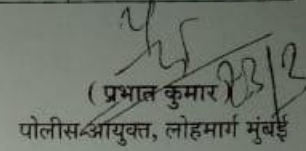 ( प्रभात कुमार ) 23/2
पोलीस आयुक्त, लोहमार्ग मुंबई